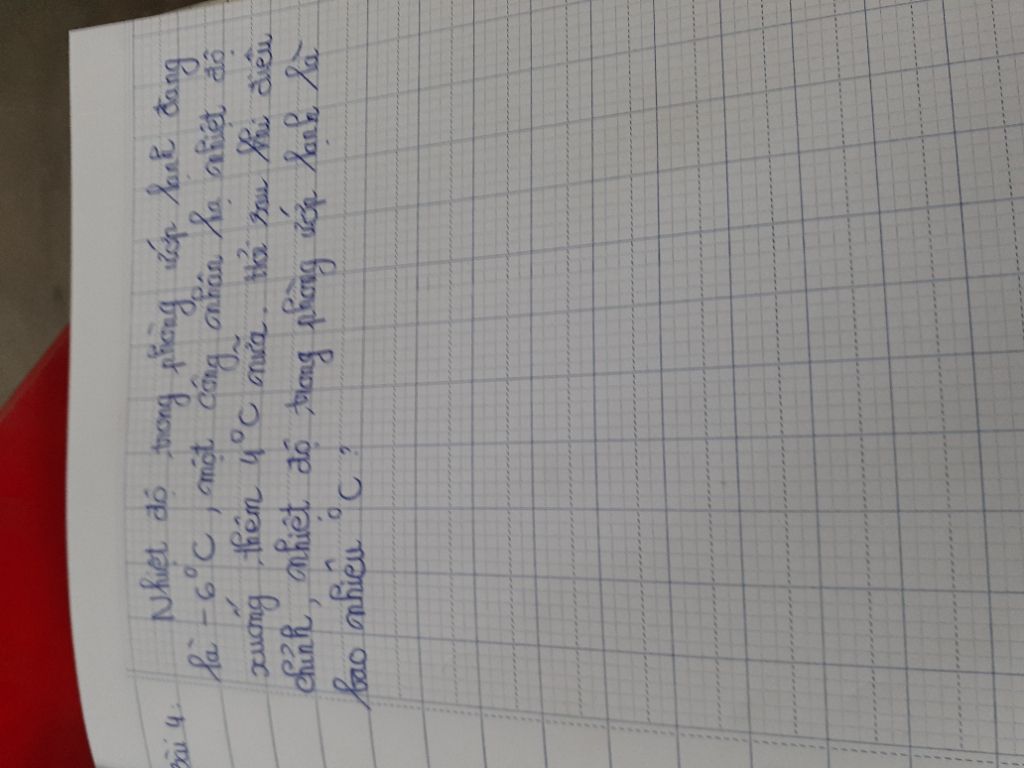 Bài 4.
Nhiệt độ trong phòng ướp lạnh đang
là -6°C, một công nhân hạ nhiệt độ
xuống thêm 4°C nữa. Hỏi sau khi điều
chỉnh, nhiệt độ trong phòng ướp lạnh là
bao nhiêu °C?